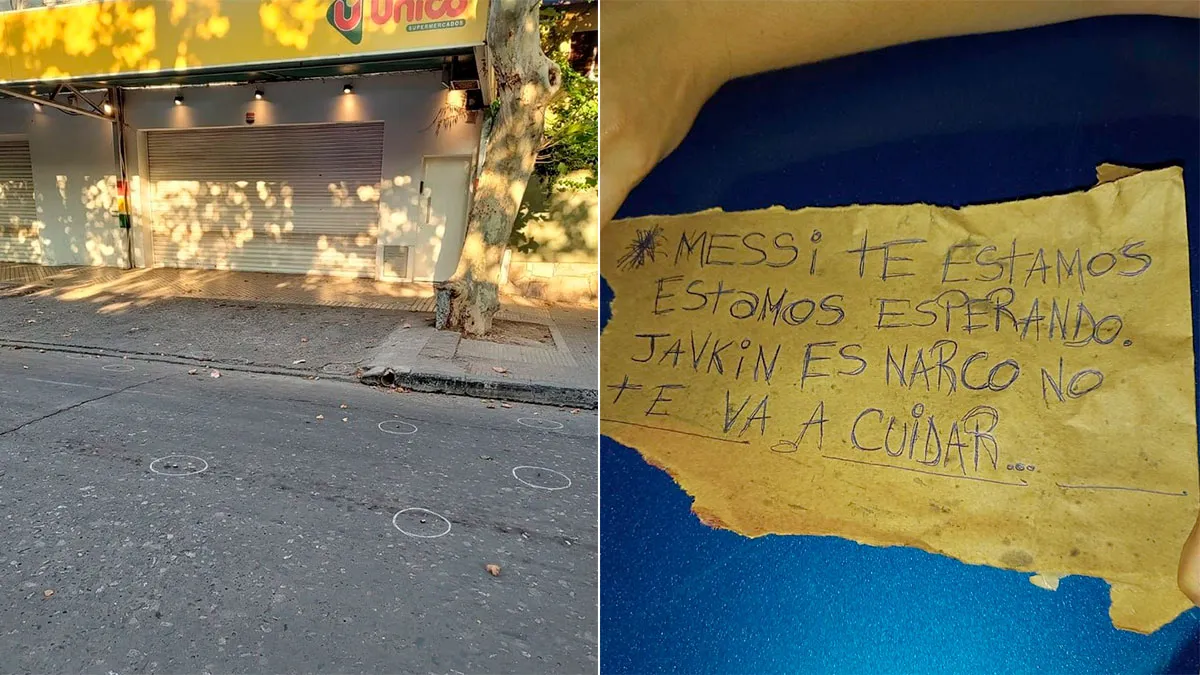 Unico
SUPERMERCADOS
MESSi tE EStAMOS
EStaMOS ESPERANDO.
JAVKiN ES NARCO NO
tE VA A CUiDAR...